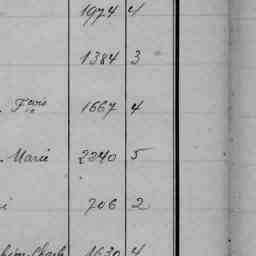 1974 4
1384 3
. Fcois 1667 4
. Marie 2240 5
i 706 2
1630 4